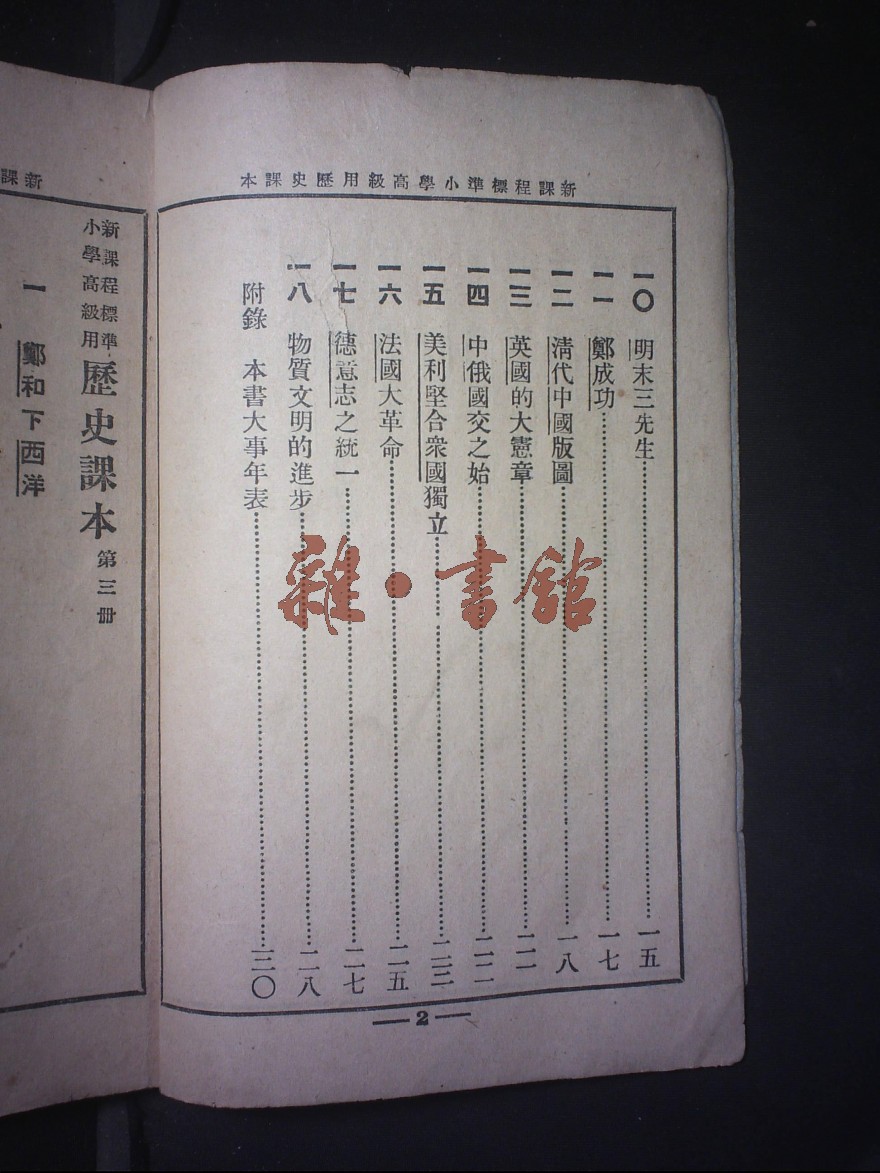 新課程標準小學高級用歷史課本
一〇 明末三先生……一五
一一 鄭成功……一七
一二 清代中國版圖……一八
一三 英國的大憲章……二一
一四 中俄國交之始……二二
一五 美利堅合衆國獨立……二三
一六 法國大革命……二五
一七 德意志之統一……二七
一八 物質文明的進步……二八
附錄 本書大事年表……三〇
—2—
新課
新課程標準
小學高級用
歷史課本 第三册
一 鄭和下西洋
雜·書館